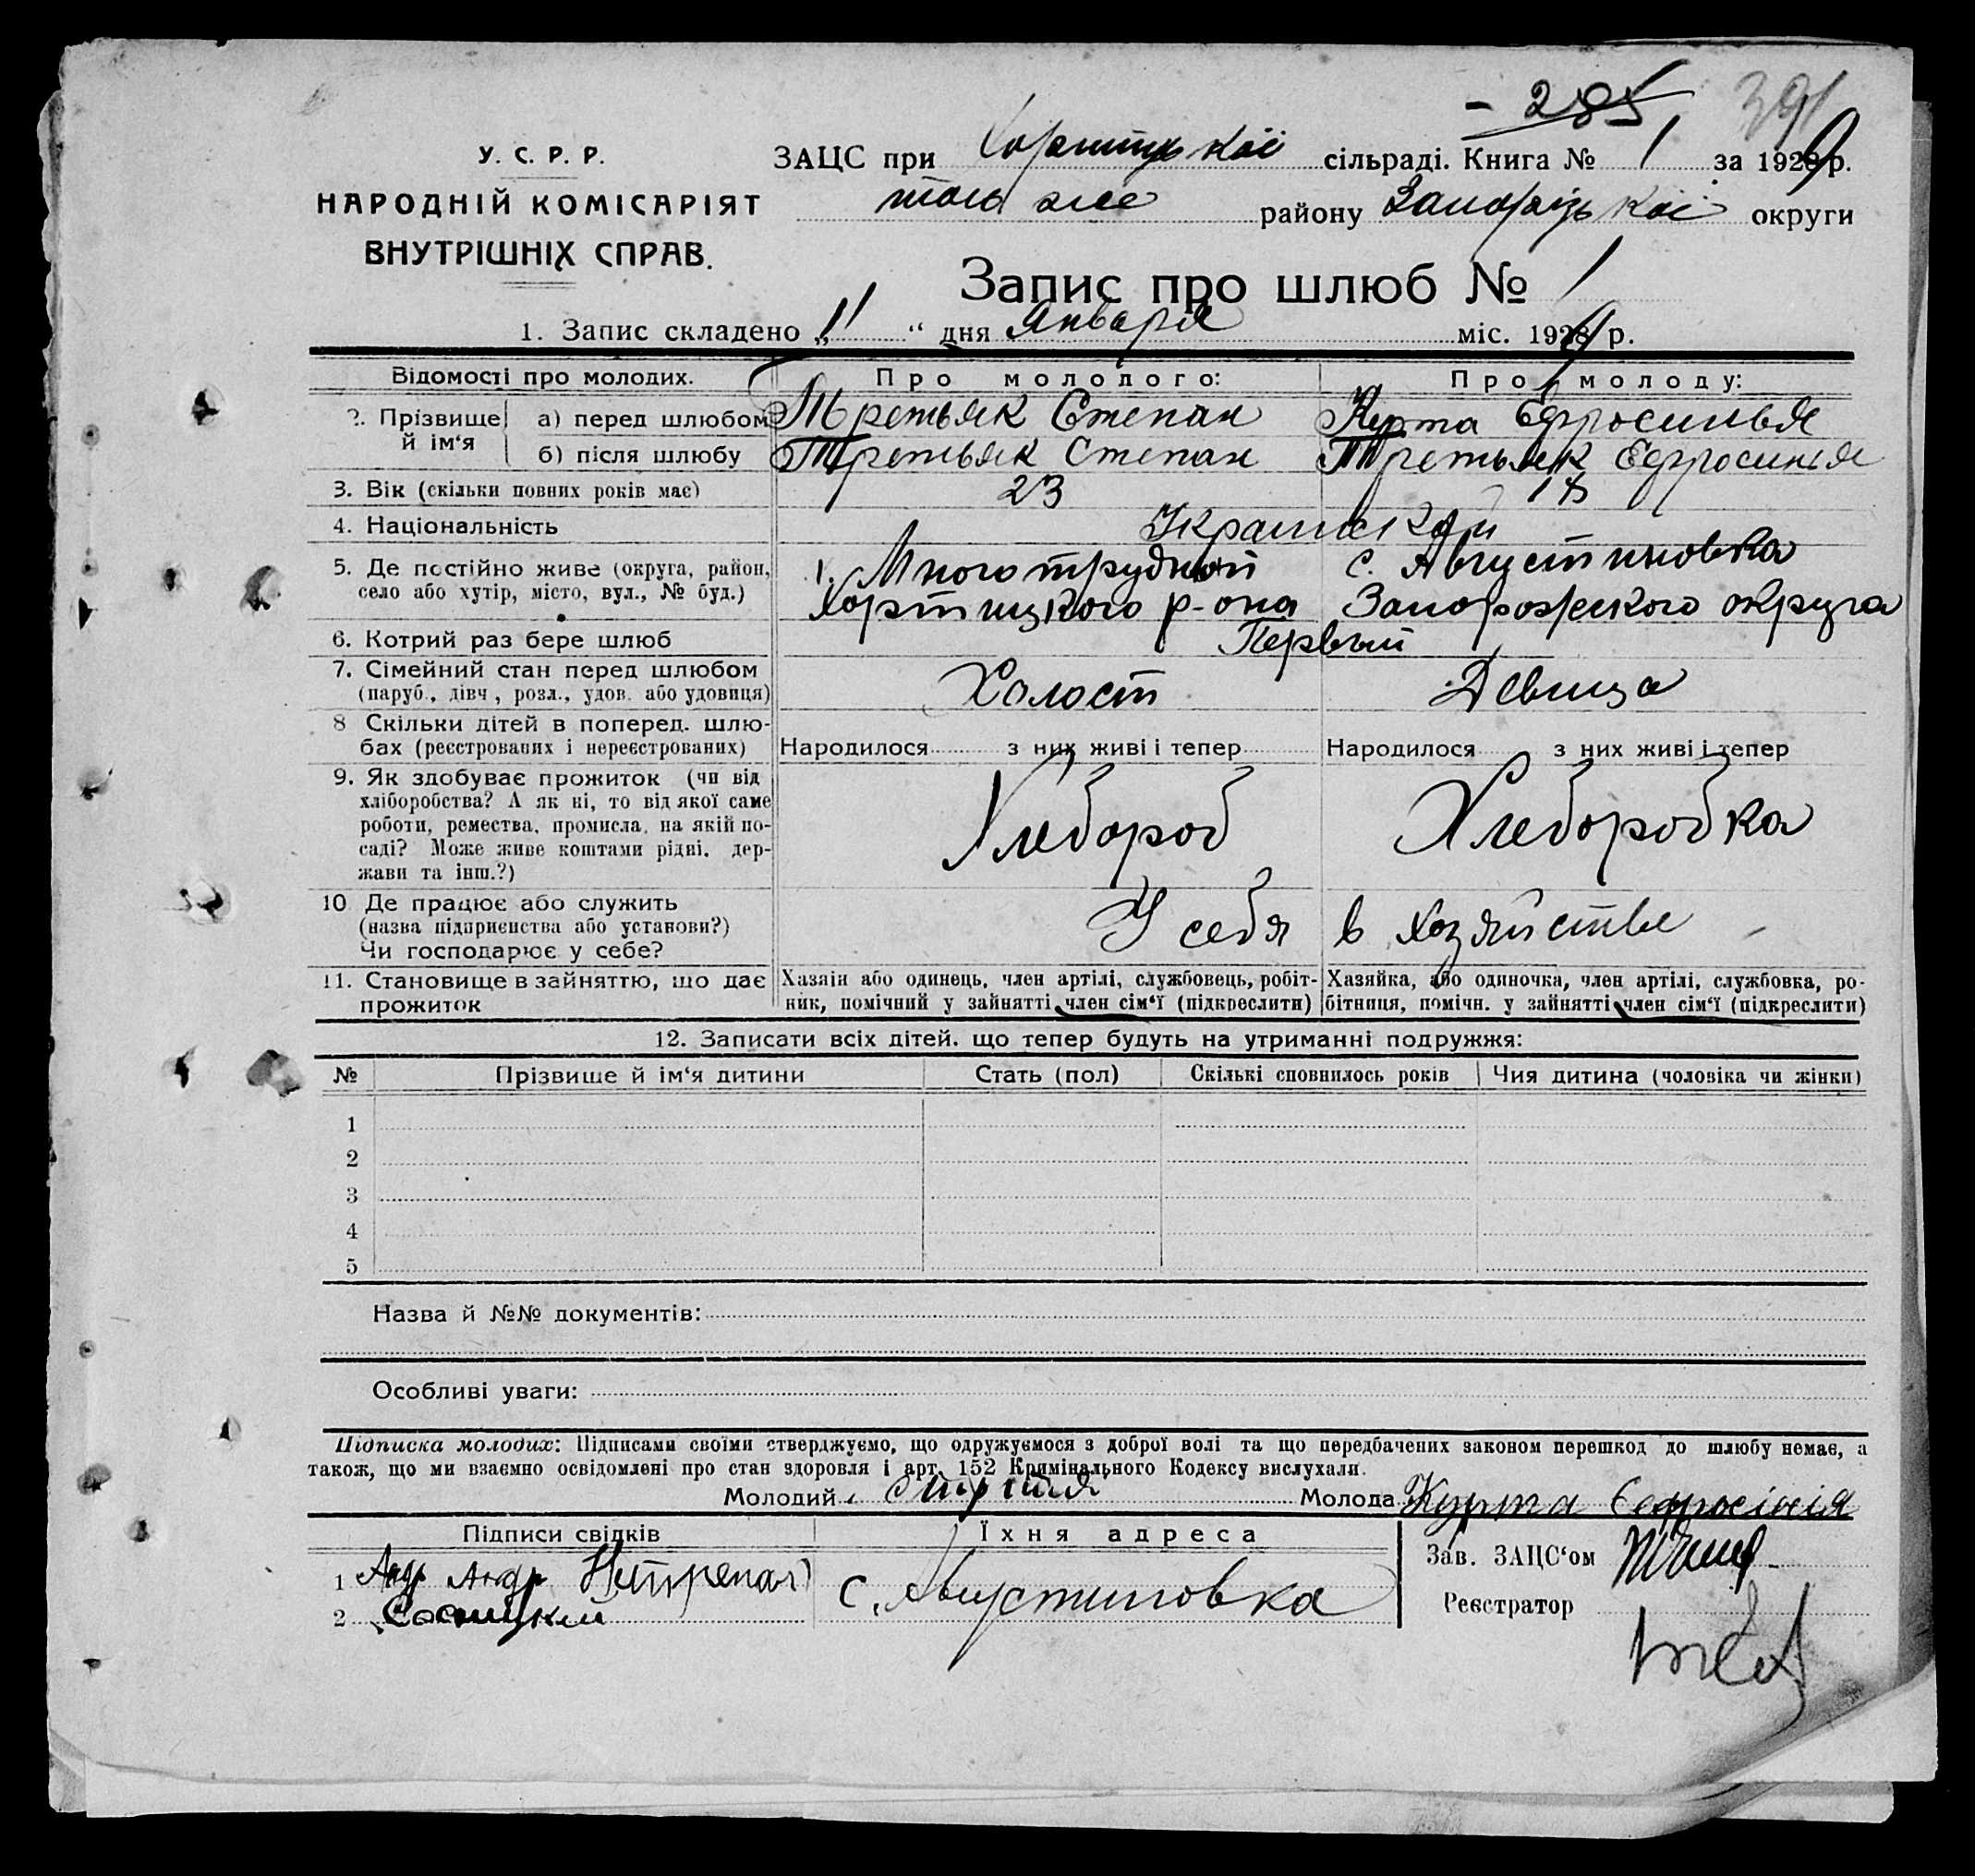 - 285 391
У. С. Р. Р.
НАРОДНІЙ КОМІСАРІЯТ
ВНУТРІШНІХ СПРАВ.
ЗАЦС при Хортицької сільраді. Книга № 1 за 1929 р.
того же району Запорізької округи
Запис про шлюб № 1
1. Запис складено „1“ дня Января міс. 1929 р.
Відомості про молодих. Про молодого: Про молоду:
2. Прізвище й ім‘я а) перед шлюбом Третьяк Степан Курта Ефросинья
б) після шлюбу Третьяк Степан Третьяк Ефросинья
3. Вік (скільки повних років має) 23 18
4. Національність
5. Де постійно живе (округа, район, Многотрудный с. Августиновка
село або хутір, місто, вул., № буд.) Хортицкого р-она Запорожского округа
6. Котрий раз бере шлюб Первый
7. Сімейний стан перед шлюбом Холост Девица
(паруб., дівч, розл., удов. або удовиця)
8 Скільки дітей в поперед. шлю-
бах (реєстрованих і нереєстрованих) Народилося з них живі і тепер Народилося з них живі і тепер
9. Як здобуває прожиток (чи від
хліборобства? А як ні, то від якої саме
роботи, ремества, промисла, на якій по- Хлебороб Хлеборобка
саді? Може живе коштами рідні, дер-
жави та інш.?)
10 Де працює або служить
(назва підприєнства або установи?) У себя в хозяйстве
Чи господарює у себе?
11. Становище в зайняттю, що дає Хазяїн або одинець, член артілі, службовець, робіт- Хазяйка, або одиночка, член артілі, службовка, ро-
прожиток ник, помічний у зайнятті член сім‘ї (підкреслити) бітниця, помічн. у зайнятті член сім‘ї (підкреслити)
12. Записати всіх дітей, що тепер будуть на утриманні подружжя:
№ Прізвише й ім‘я дитини Стать (пол) Скількі сповнилось років Чия дитина (чоловіка чи жінки)
1
2
3
4
5
Назва й №№ документів:
Особливі уваги:
Підписка молодих: Підписами своїми стверджуємо, що одружуємося з доброї волі та що передбачених законом перешкод до шлюбу немає, а
також, що ми взаємно освідомлені про стан здоровля і арт. 152 Кримінального Кодексу вислухали.
Молодий Молода Курта Еефросінія
Підписи свідків Їхня адреса Зав. ЗАЦС‘ом
1 Андр
2 с. Августиновка Реєстратор